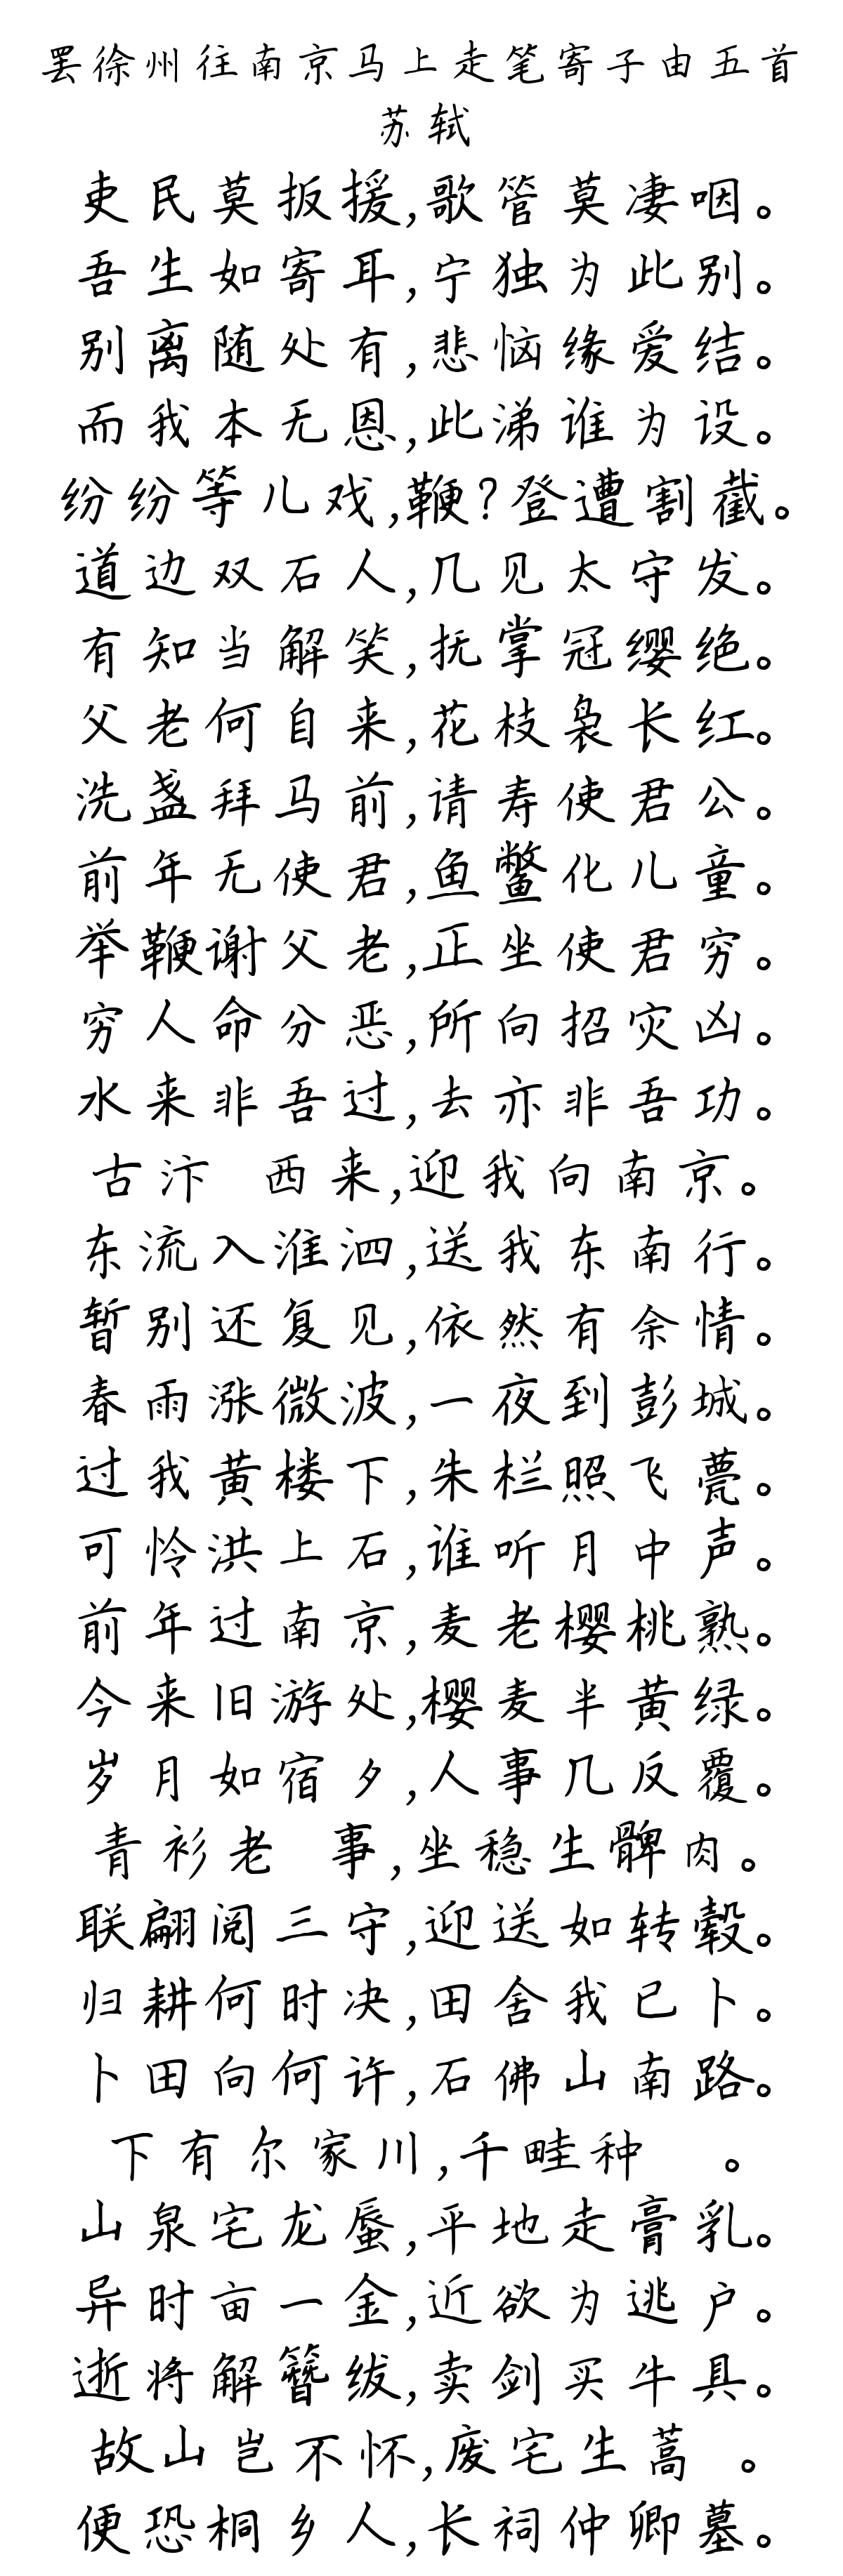 罢徐州往南京马上走笔寄子由五首
苏轼
吏民莫扳援,歌管莫凄咽。
吾生如寄耳,宁独为此别。
别离随处有,悲恼缘爱结。
而我本无恩,此涕谁为设。
纷纷等儿戏,鞭?登遭割截。
道边双石人,几见太守发。
有知当解笑,抚掌冠缨绝。
父老何自来,花枝袅长红。
洗盏拜马前,请寿使君公。
前年无使君,鱼鳖化儿童。
举鞭谢父老,正坐使君穷。
穷人命分恶,所向招灾凶。
水来非吾过,去亦非吾功。
古汴 西来,迎我向南京。
东流入淮泗,送我东南行。
暂别还复见,依然有余情。
春雨涨微波,一夜到彭城。
过我黄楼下,朱栏照飞甍。
可怜洪上石,谁听月中声。
前年过南京,麦老樱桃熟。
今来旧游处,樱麦半黄绿。
岁月如宿夕,人事几反覆。
青衫老 事,坐稳生髀肉。
联翩阅三守,迎送如转毂。
归耕何时决,田舍我已卜。
卜田向何许,石佛山南路。
下有尔家川,千畦种 。
山泉宅龙蜃,平地走膏乳。
异时亩一金,近欲为逃户。
逝将解簪绂,卖剑买牛具。
故山岂不怀,废宅生蒿 。
便恐桐乡人,长祠仲卿墓。